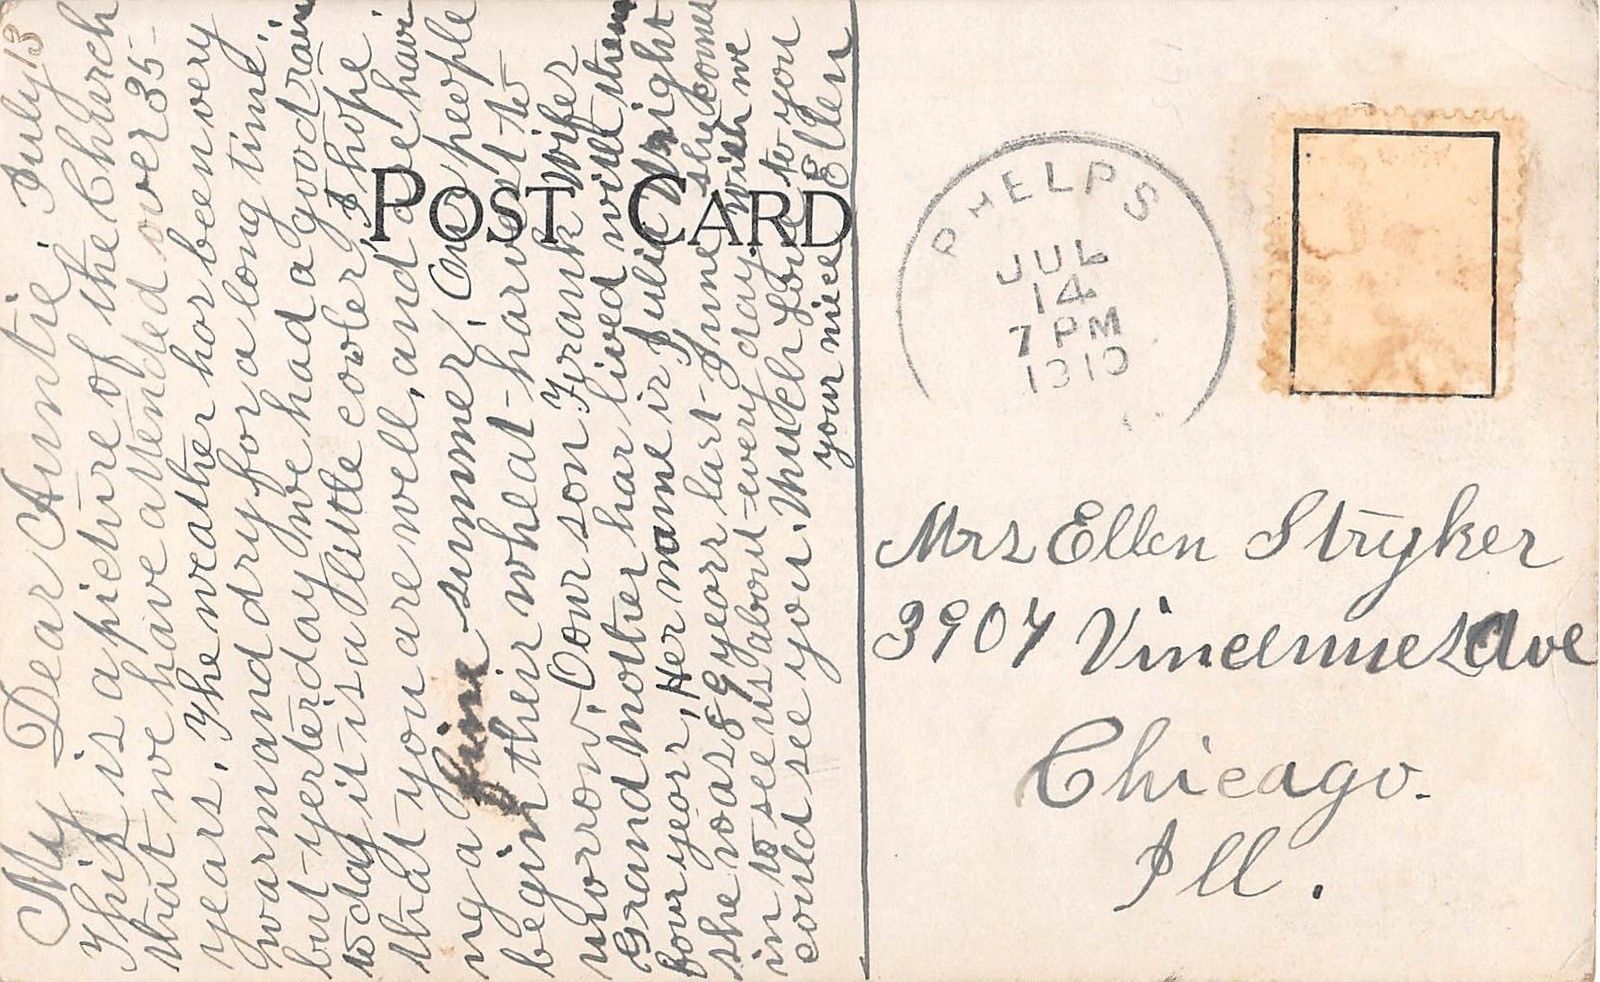 My Dear Auntie. July 13
This is a picture of the Church
that we have attended over 35-
years. The weather has been very
warm and dry for a long time.
but-yesterday we had a good rain
to day it-is a little cooler, I hope
that-you are well, and are havi
ng a fine summer. Our people
begin their wheat-harvest to
morrow. Our son Frank wifes
Grandmother has lived with them
four years, Her name is Julie Wright
she was 89 years last-June she comes
in to see us about-every day. wish we
could see you. Much Love to you
your niece Ellen
POST CARD
PHELPS
JUL
14
7 PM
1910
Mrs Ellen Stryker
3904 Vincennes Ave
Chicago.
Ill.